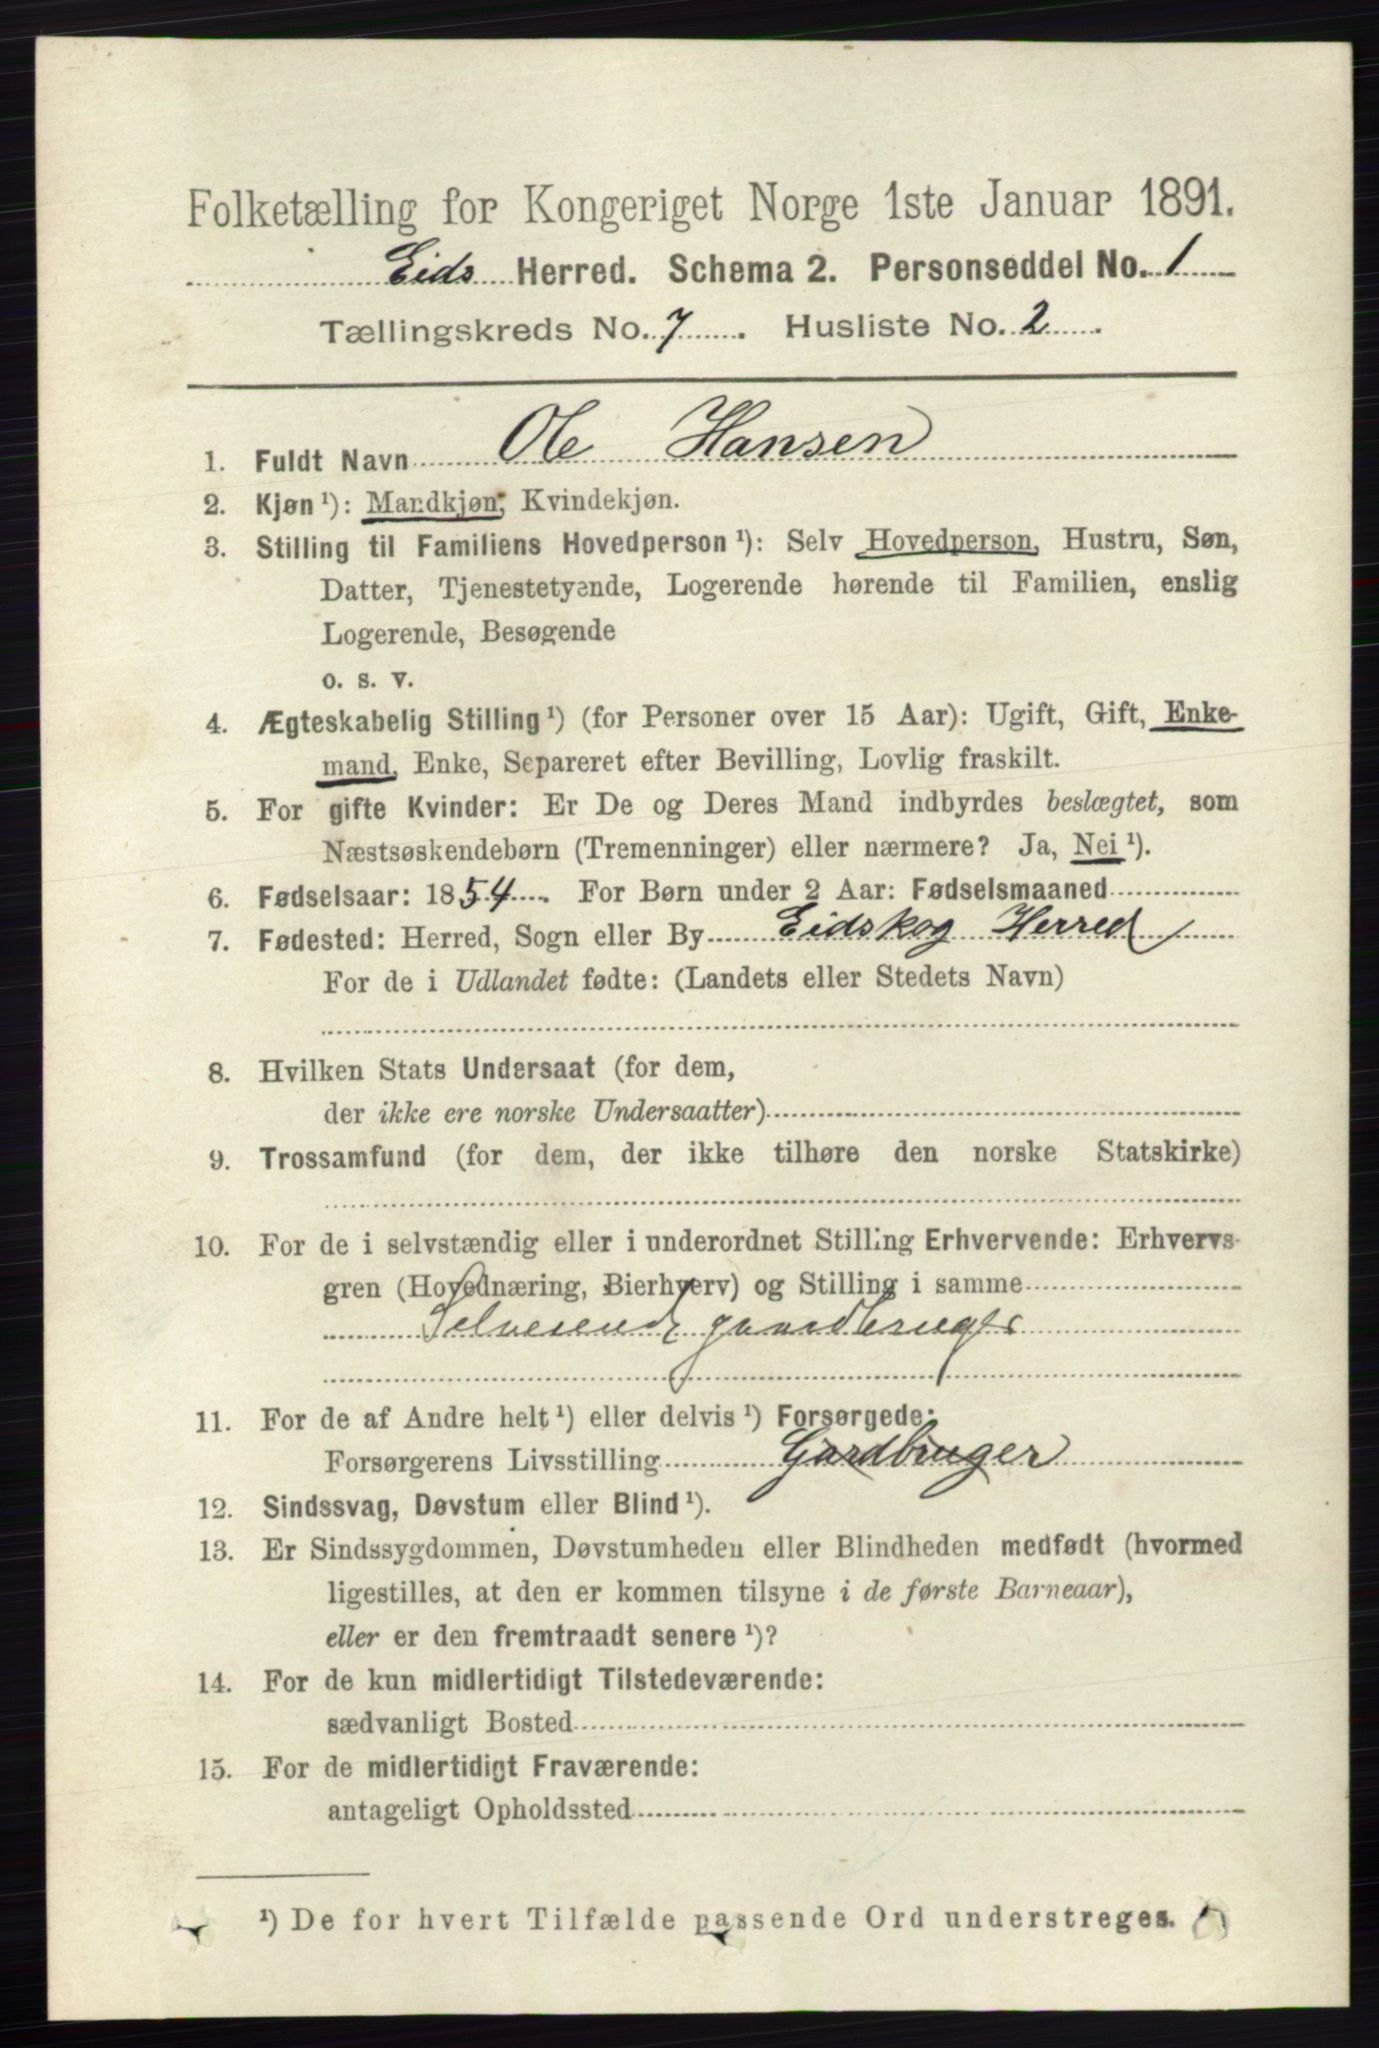 Folketælling for Kongeriget Norge 1ste Januar 1891.
Eids Herred. Schema 2. Personseddel No. 1
Tællingskreds No. 7. Husliste No. 2.
1. Fuldt Navn Ole Hansen
2. Kjøn ¹): Mandkjøn, Kvindekjøn.
3. Stilling til Familiens Hovedperson ¹): Selv Hovedperson, Hustru, Søn,
Datter, Tjenestetyende, Logerende hørende til Familien, enslig
Logerende, Besøgende
o. s. v.
4. Ægteskabelig Stilling ¹) (for Personer over 15 Aar): Ugift, Gift, Enke-
mand, Enke, Separeret efter Bevilling, Lovlig fraskilt.
5. For gifte Kvinder: Er De og Deres Mand indbyrdes beslægtet, som
Næstsøskendebørn (Tremenninger) eller nærmere? Ja, Nei ¹).
6. Fødselsaar: 1854. For Børn under 2 Aar: Fødselsmaaned
7. Fødested: Herred, Sogn eller By Eidskog Herred
For de i Udlandet fødte: (Landets eller Stedets Navn)
8. Hvilken Stats Undersaat (for dem,
der ikke ere norske Undersaatter)
9. Trossamfund (for dem, der ikke tilhøre den norske Statskirke)
10. For de i selvstændig eller i underordnet Stilling Erhvervende: Erhvervs-
gren (Hovednæring, Bierhverv) og Stilling i samme
Selveiende gaardbruger
11. For de af Andre helt ¹) eller delvis ¹) Forsørgede:
Forsørgerens Livsstilling Gardbruger
12. Sindssvag, Døvstum eller Blind ¹).
13. Er Sindssygdommen, Døvstumheden eller Blindheden medfødt (hvormed
ligestilles, at den er kommen tilsyne i de første Barneaar),
eller er den fremtraadt senere ¹)?
14. For de kun midlertidigt Tilstedeværende:
sædvanligt Bosted
15. For de midlertidigt Fraværende:
antageligt Opholdssted
¹) De for hvert Tilfælde passende Ord understreges.